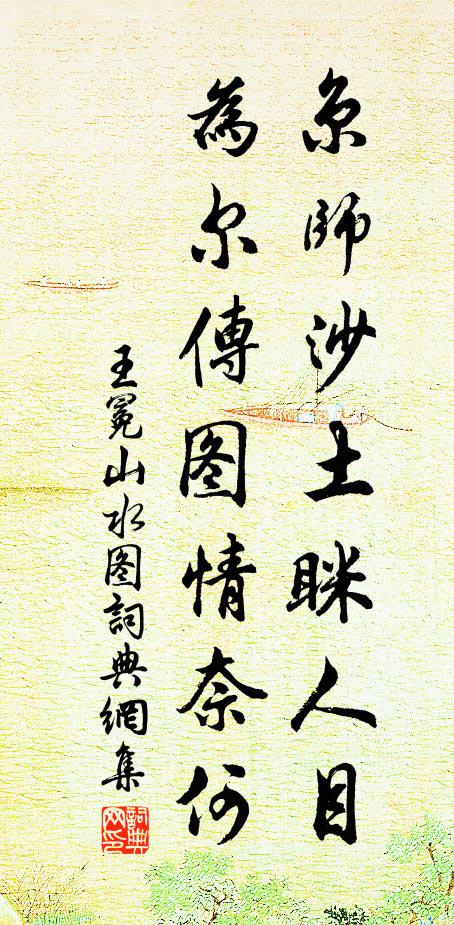 京師沙土眯人目
為尔傳图情奈何
王冕山水图詞典網集
詞典网印